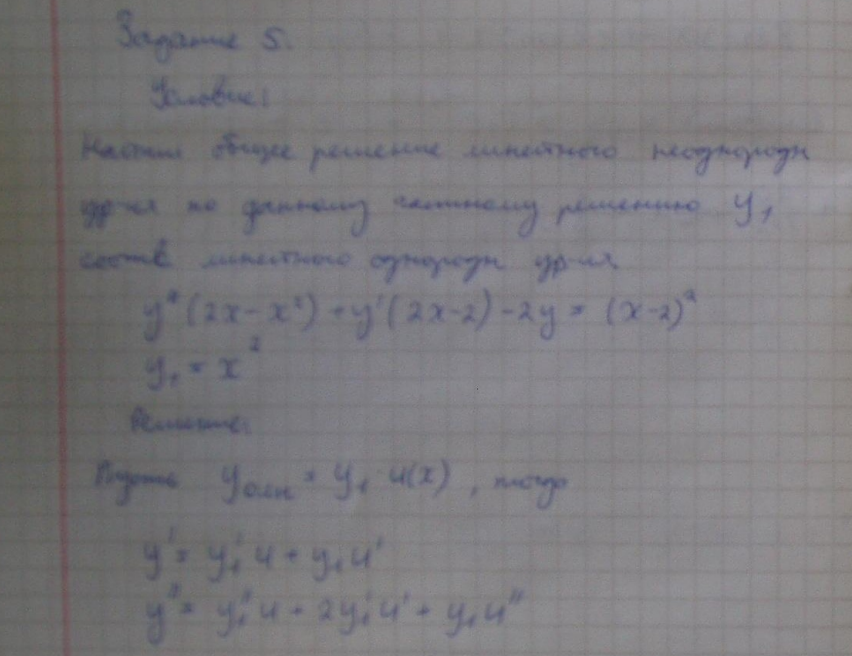 Задание 5.
Условие:
Найти общее решение линейного неоднородн
ур-ия по данному частному решению y₁
соотв линейного однородн ур-ия.
y"(2x-x²)+y'(2x-2)-2y = (x-2)²
y₁ = x²
Решение:
Пусть = y₁ u(x), тогда
y' = y₁'u + y₁u'
y" = y₁"u + 2y₁'u' + y₁u"